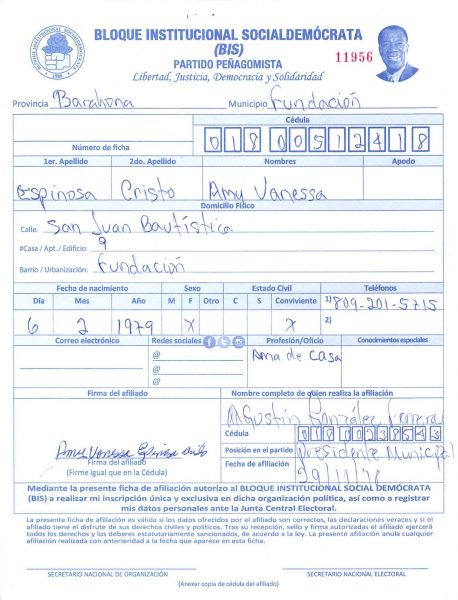 BLOQUE INSTITUCIONAL SOCIALDEMÓCRATA
(BIS)
PARTIDO PEÑAGOMISTA
Libertad, Justicia, Democracia y Solidaridad
11956
Provincia Barahona Municipio Fundación
Cédula
Número de ficha 018 0051241 8
1er. Apellido 2do. Apellido Nombres Apodo
Espinosa Cristo Amy Vanessa
Domicilio Físico
Calle: San Juan Bautística
#Casa / Apt. / Edificio: 9
Barrio / Urbanización: Fundación
Fecha de nacimiento Sexo Estado Civil Teléfonos
Día Mes Año M F Otro C S Conviviente 1) 809-201-5715
6 2 1979 X X 2)
Correo electrónico Redes sociales Profesión/Oficio Conocimientos especiales
@ Ama de casa
@
@
Firma del afiliado Nombre completo de quien realiza la afiliación
Agustín González Ferrera
Cédula 018 0023854 3
Amy Vanessa Espinosa Cristo
Posición en el partido Presidente Municipal
Firma del afiliado
(Firme igual que en la Cédula)
Fecha de afiliación 29/11/
Mediante la presente ficha de afiliación autorizo al BLOQUE INSTITUCIONAL SOCIAL DEMÓCRATA
(BIS) a realizar mi inscripción única y exclusiva en dicha organización política, así como a registrar
mis datos personales ante la Junta Central Electoral.
La presente ficha de afiliación es válida si los datos ofrecidos por el afiliado son correctos, las declaraciones veraces y si el
afiliado tiene el disfrute de sus derechos civiles y políticos. Tras su recepción, sello y firma autorizadas el afiliado ejercerá
todos los derechos y los deberes estatutariamente sancionados, de acuerdo a la ley. La presente afiliación anula cualquier
afiliación realizada con anterioridad a la fecha que aparece en esta ficha.
SECRETARIO NACIONAL DE ORGANIZACIÓN SECRETARIO NACIONAL ELECTORAL
(Anexar copia de cédula del afiliado)